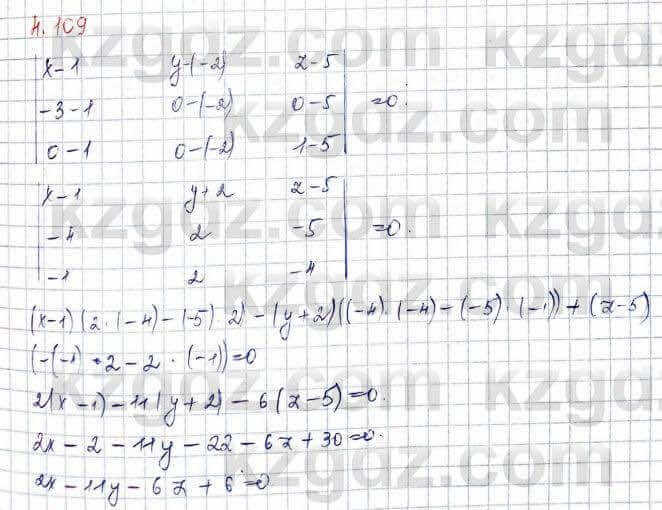 4.109
| x-1 y-(-2) z-5 |
| -3-1 0-(-2) 0-5 | =0.
| 0-1 0-(-2) 1-5 |
| x-1 y+2 z-5 |
| -4 2 -5 | =0.
| -1 2 -4 |
(x-1)(2·(-4)-(-5) 2)-(y+2)((-4)·(-4)-(-5)·(-1))+(z-5)
(-(-1)·2-2·(-1))=0
2(x-1)-11(y+2)-6(z-5)=0.
2x-2-11y-22-6z+30=0.
2x-11y-6z+6=0
kzgdz.com
kzgdz.com
kzgdz.com
kzgdz.com
kzgdz.com
kzgdz.com